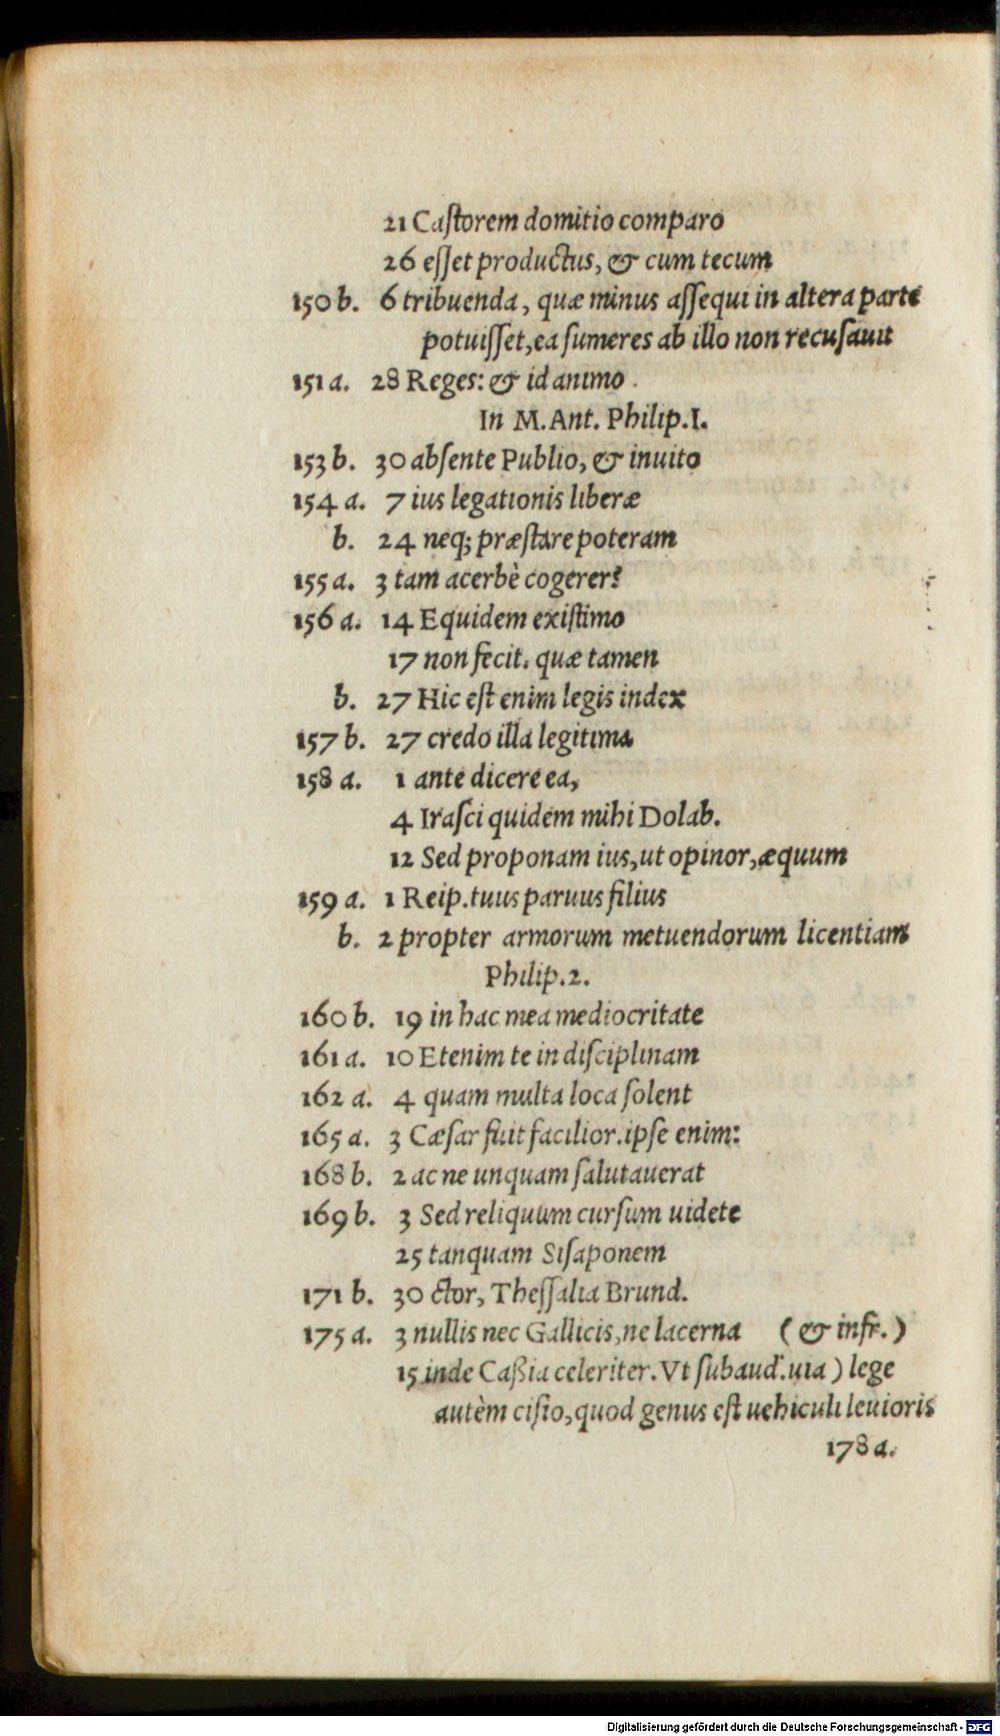 21 Caſtorem domitio comparo
26 eſſet productus, & cum tecum
150 b. 6 tribuenda, quæ minus aſſequi in altera parte
potuiſſet, ea ſumeres ab illo non recuſauit
151 a. 28 Reges: & id animo.
In M. Ant. Philip. I.
153 b. 30 abſente Publio, & inuito
154 a. 7 ius legationis liberæ
b. 24 neq; præſtare poteram
155 a. 3 tam acerbè cogerer?
156 a. 14 Equidem exiſtimo
17 non fecit. quæ tamen
b. 27 Hic eſt enim legis index
157 b. 27 credo illa legitima
158 a. 1 ante dicere ea,
4 Iraſci quidem mihi Dolab.
12 Sed proponam ius, ut opinor, æquum
159 a. 1 Reip. tuus paruus filius
b. 2 propter armorum metuendorum licentiam
Philip. 2.
160 b. 19 in hac mea mediocritate
161 a. 10 Etenim te in diſciplinam
162 a. 4 quam multa loca ſolent
165 a. 3 Cæſar fuit facilior. ipſe enim:
168 b. 2 ac ne unquam ſalutauerat
169 b. 3 Sed reliquum curſum uidete
25 tanquam Siſaponem
171 b. 30 ctor, Theſſalia Brund.
175 a. 3 nullis nec Gallicis, ne lacerna (& infr.)
15 inde Caßia celeriter. Vt ſubaud'. uia) lege
autèm ciſio, quod genus eſt uehiculi leuioris
178 a.
Digitalisierung gefördert durch die Deutsche Forschungsgemeinschaft - DFG